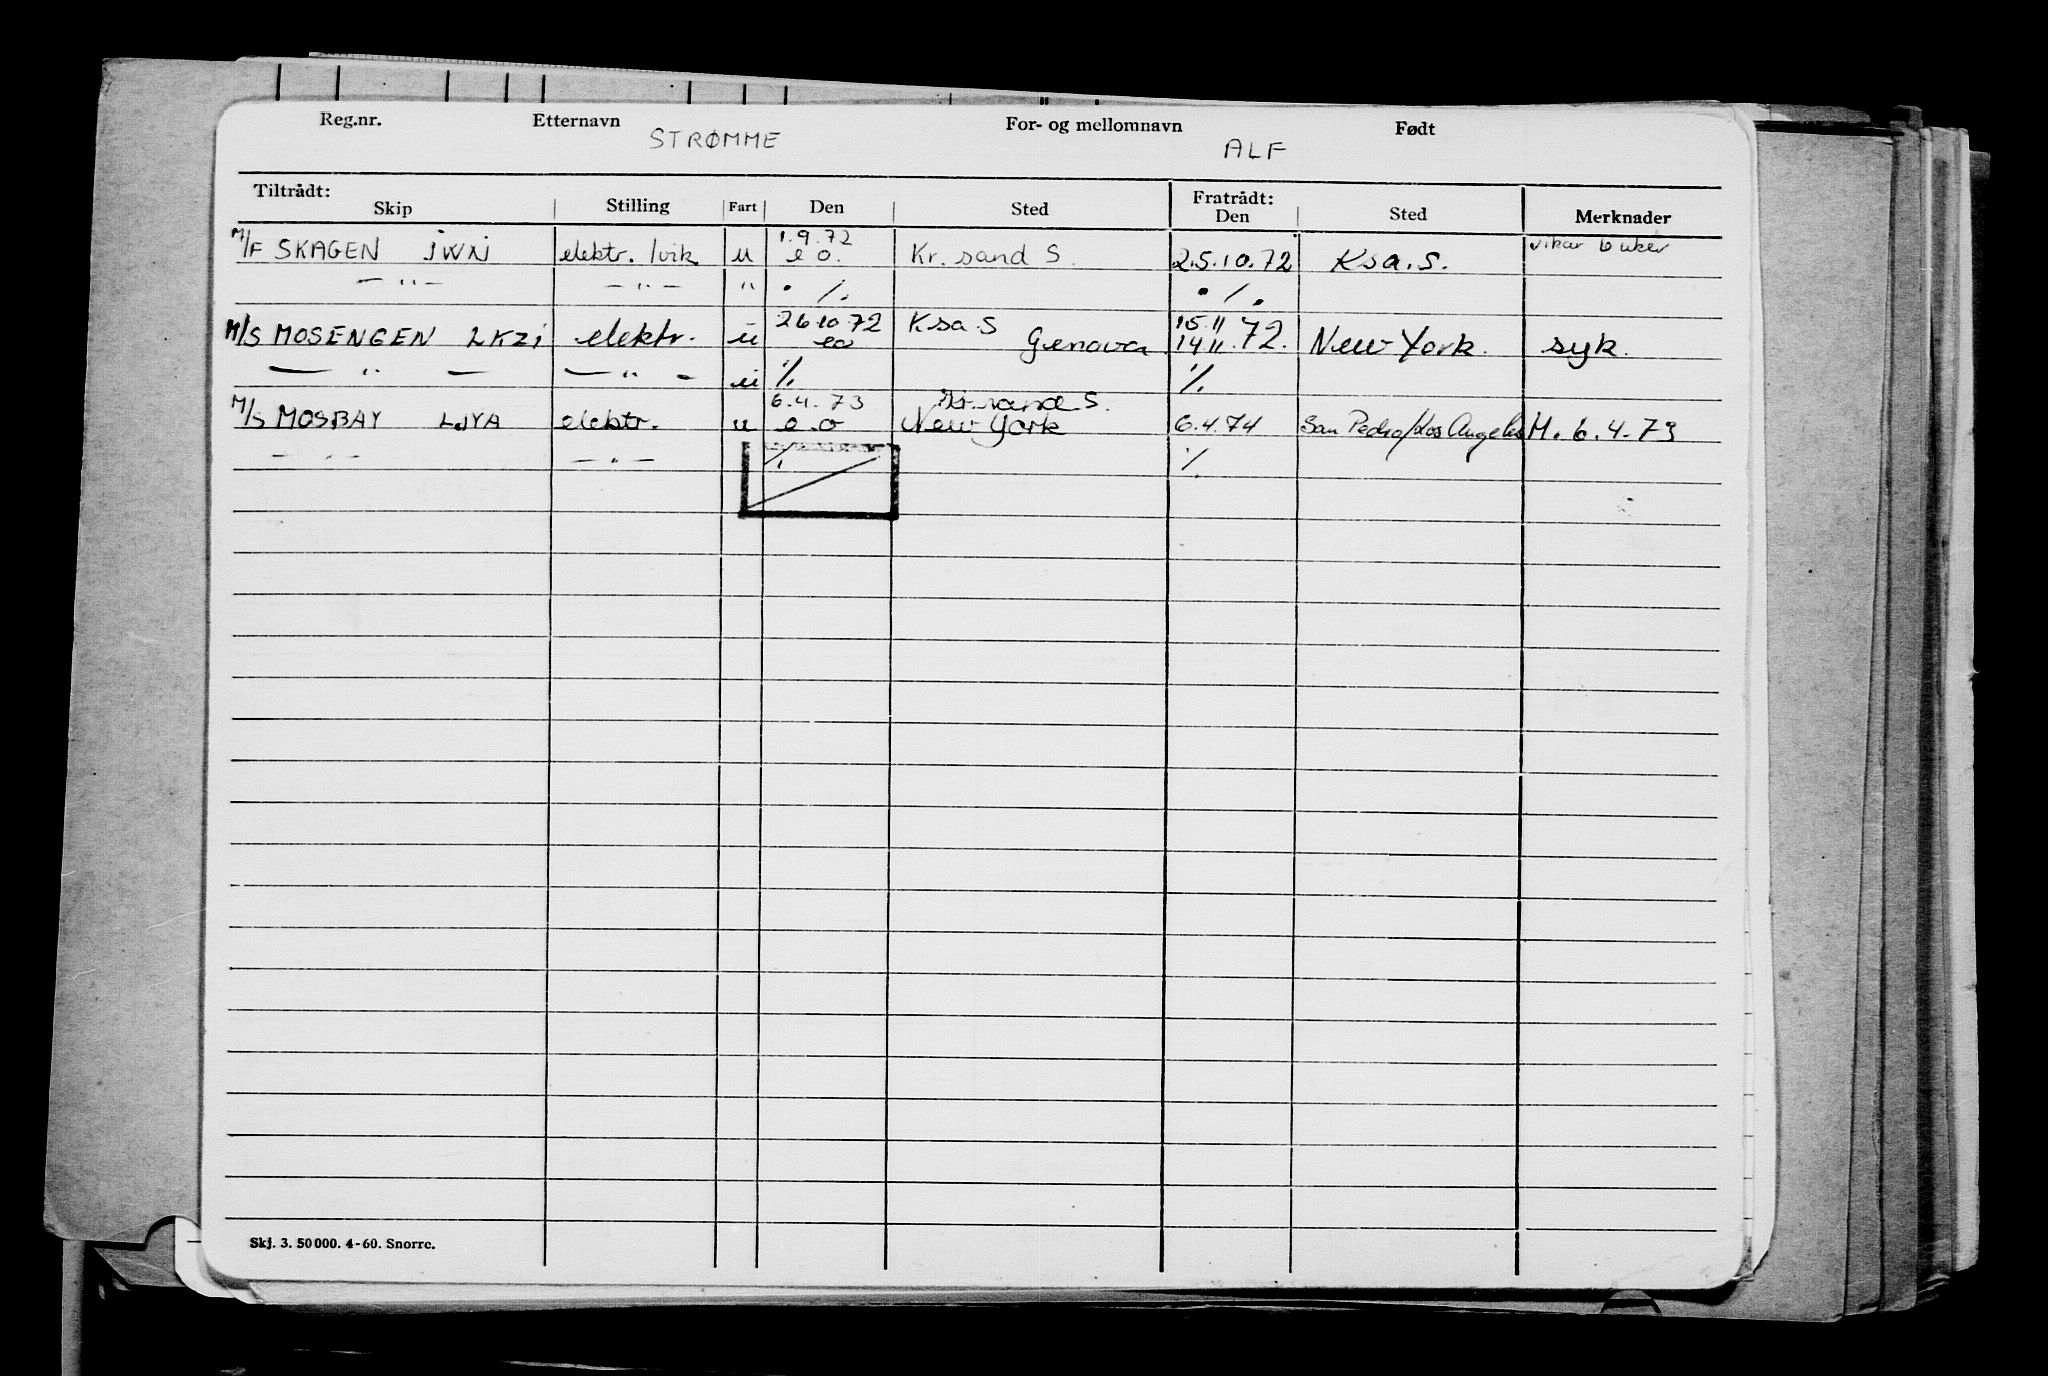 Reg.nr. Etternavn For- og mellomnavn Født
STRØMME ALF
Tiltrådt: Fratrådt:
Skip Stilling Fart Den Sted Den Sted Merknader
1.9.72 vikar 6 uker
M/F SKAGEN JWNJ elektr. /vik u e o. Kr. sand S. 25.10.72 Ksa. S.
— " — — " — " . /. . / .
26.10.72 Ksa S 15.11
M/S MOSENGEN LKZI elektr. u eo Genova 14 11.72. New York. syk.
— " — — " — u /. /.
6.4.73 Kr.sand S.
M/S MOSBAY LJYA elektr. u e.o New York 6.4.74 San Pedro/Los Angeles M. 6.4.73
— " — — " — /. /.
Skj. 3. 50 000. 4-60. Snorre.